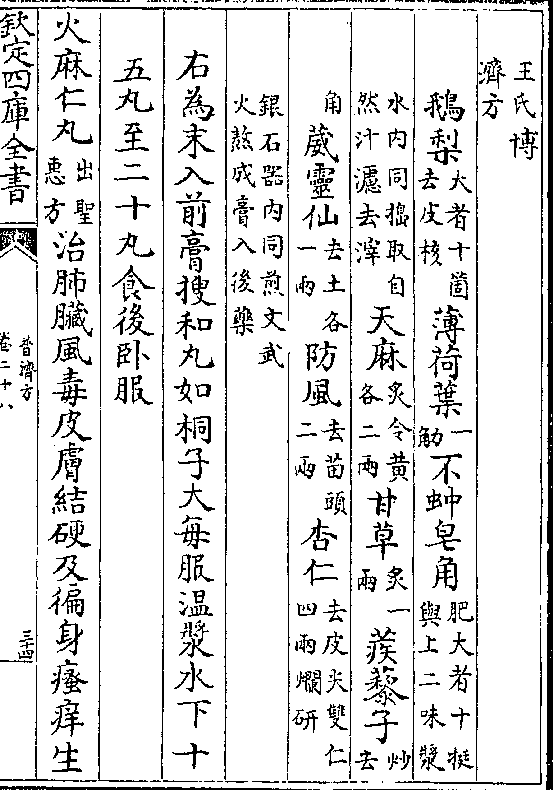 王氏博
濟方
鵝梨大者十箇去皮核薄荷葉一觔不蚛皂角肥大者十挺與上二味漿
水内同搗取自然汁濾去滓天麻炙令黄各二兩甘草炙一兩蒺藜子炒去
角葳靈仙去土各一兩防風去苗頭二兩杏仁去皮尖雙仁四兩爛研
銀石器内同煎文武火熬成膏入後藥
右為末入前膏搜和丸如桐子大每服温漿水下十
五丸至二十丸食後卧服
火麻仁丸出聖惠方治肺臟風毒皮膚結硬及徧身瘙痒生
欽定四庫全書
普濟方
卷二十八
三十四